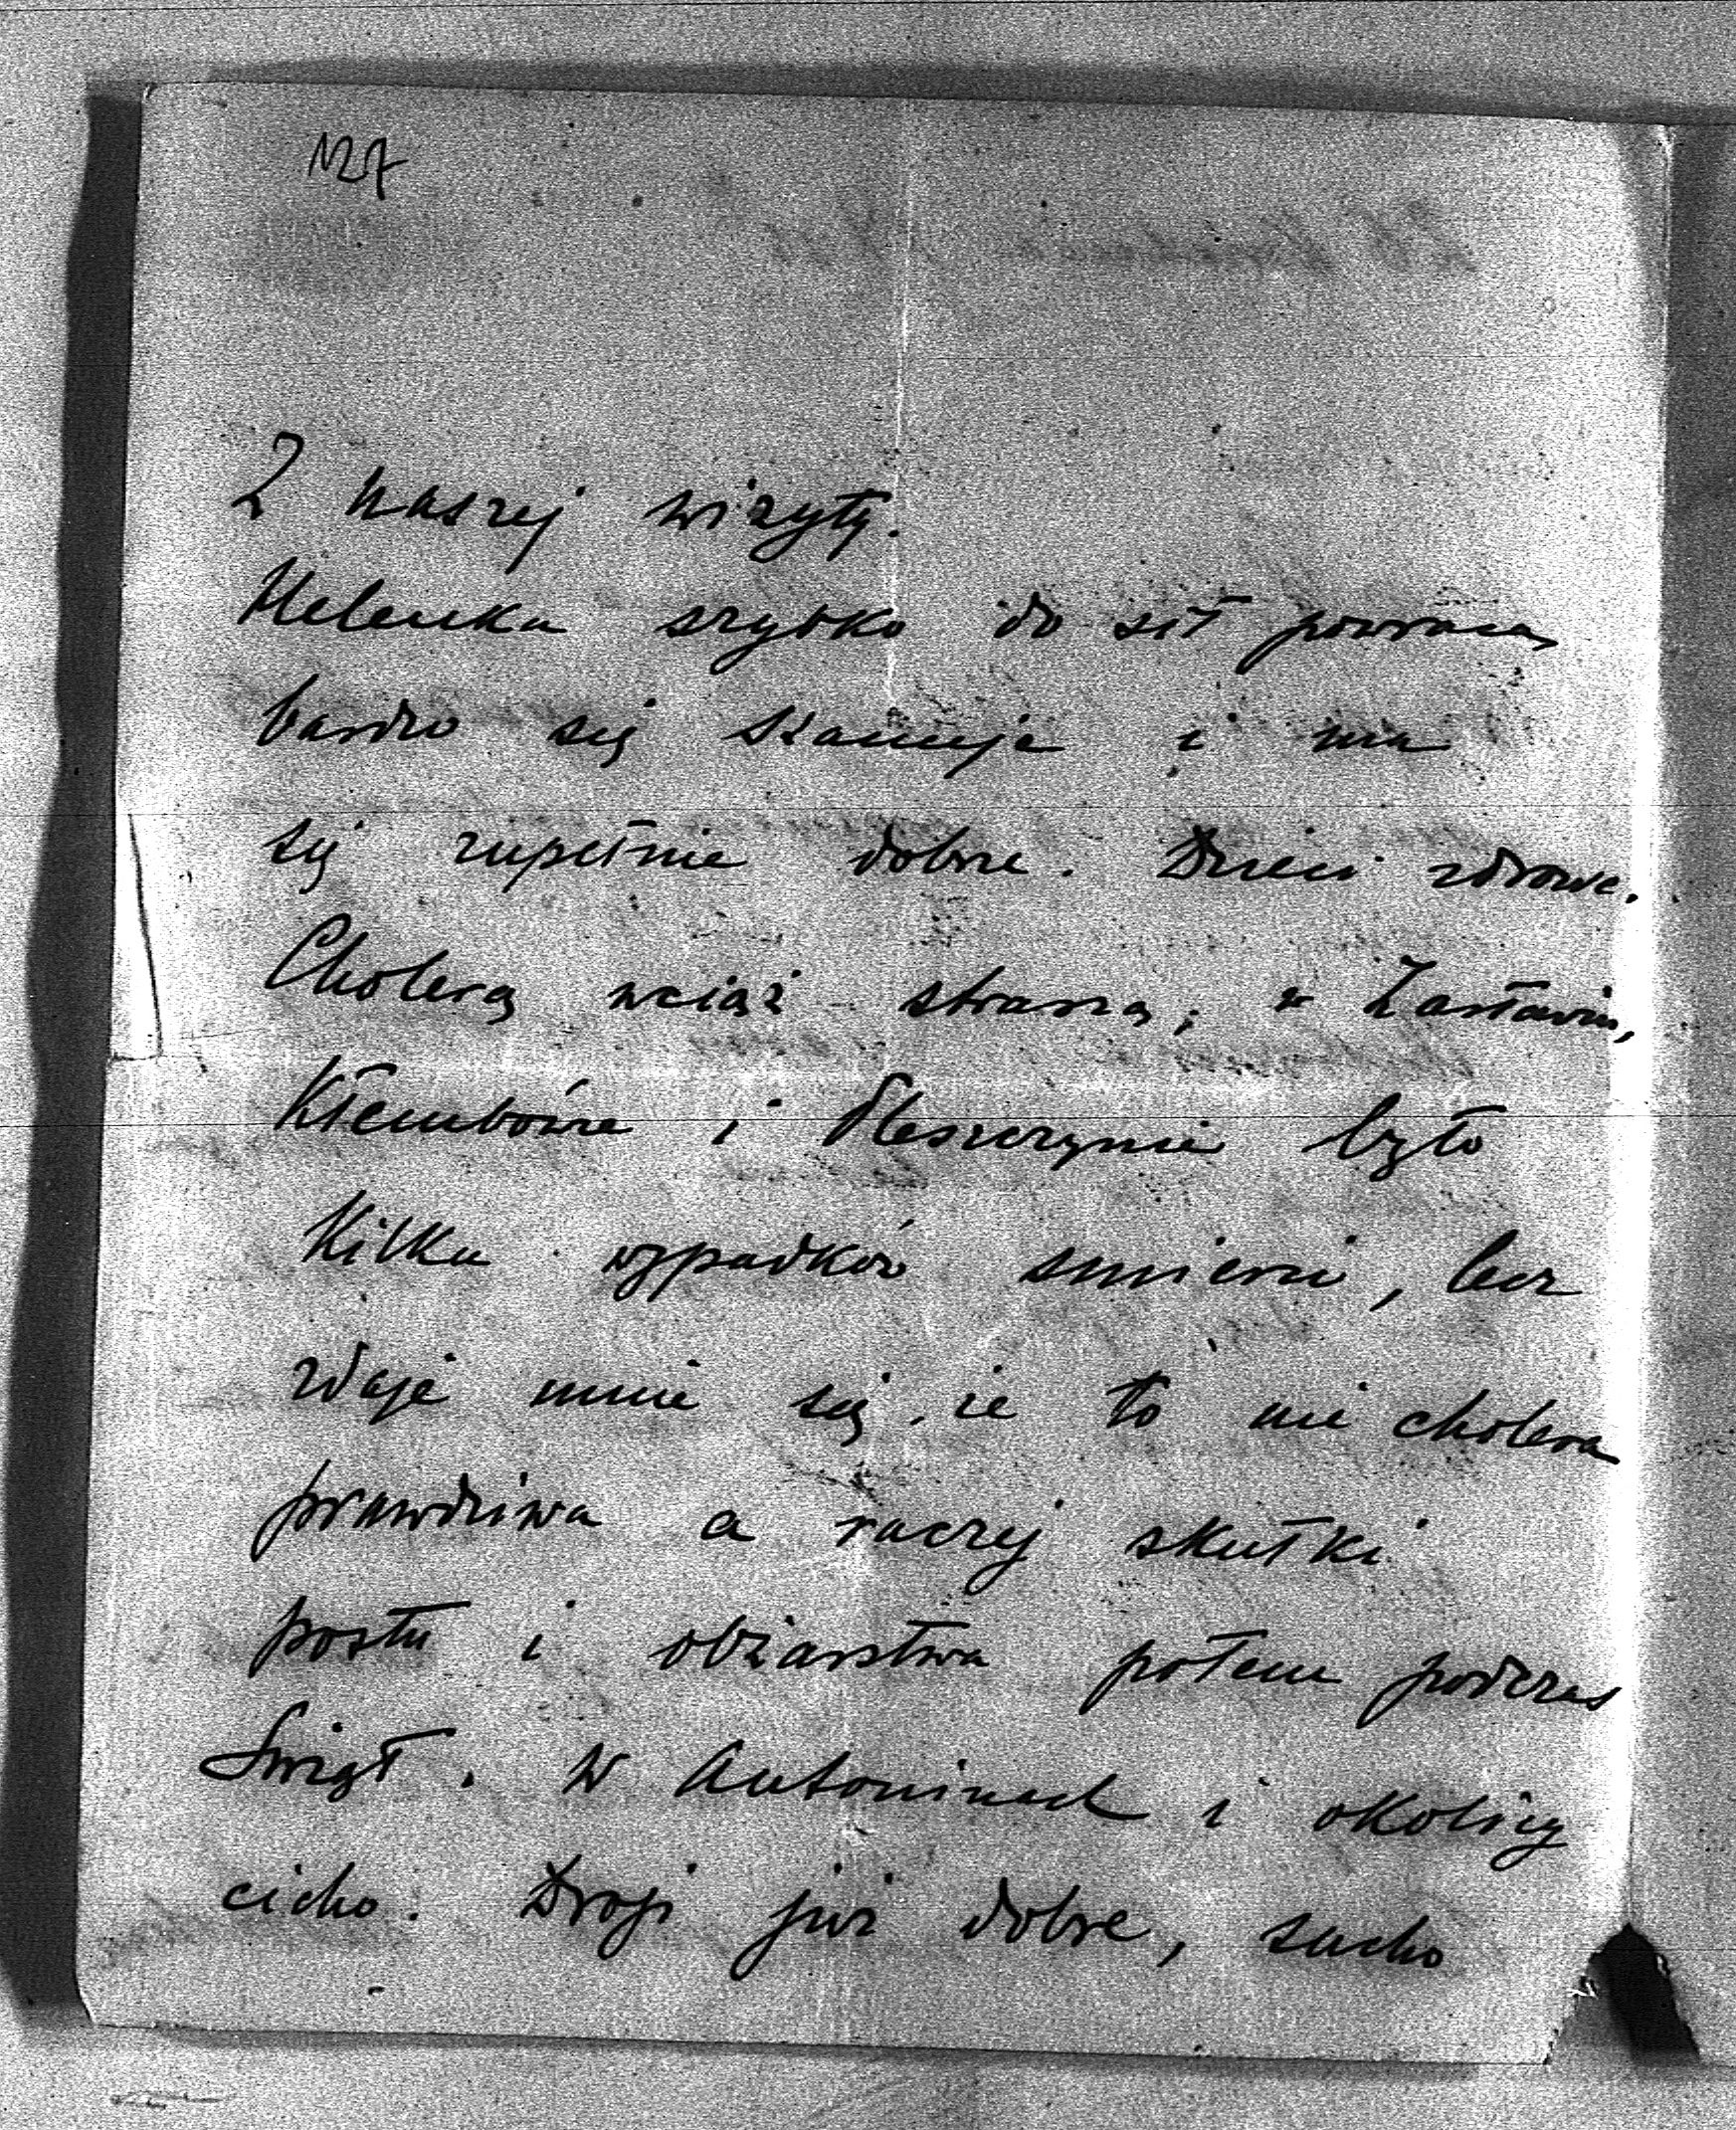 127
Z naszej wizyty.
Helenka szybko do sił powraca,
bardzo się szanuje i ma
się zupełnie dobrze. Dzieci zdrowe.
Cholerą wciąż straszą; w Zasławiu,
Kłembówce i Pleszczynie było
kilka wypadków smierci, lecz
zdaje mnie się że to nie cholera
prawdziwa a raczej skutki
postu i obżarstwa potem podczas
Swięt. W Antoninach i okolicy
cicho. Drogi już dobre, sucho